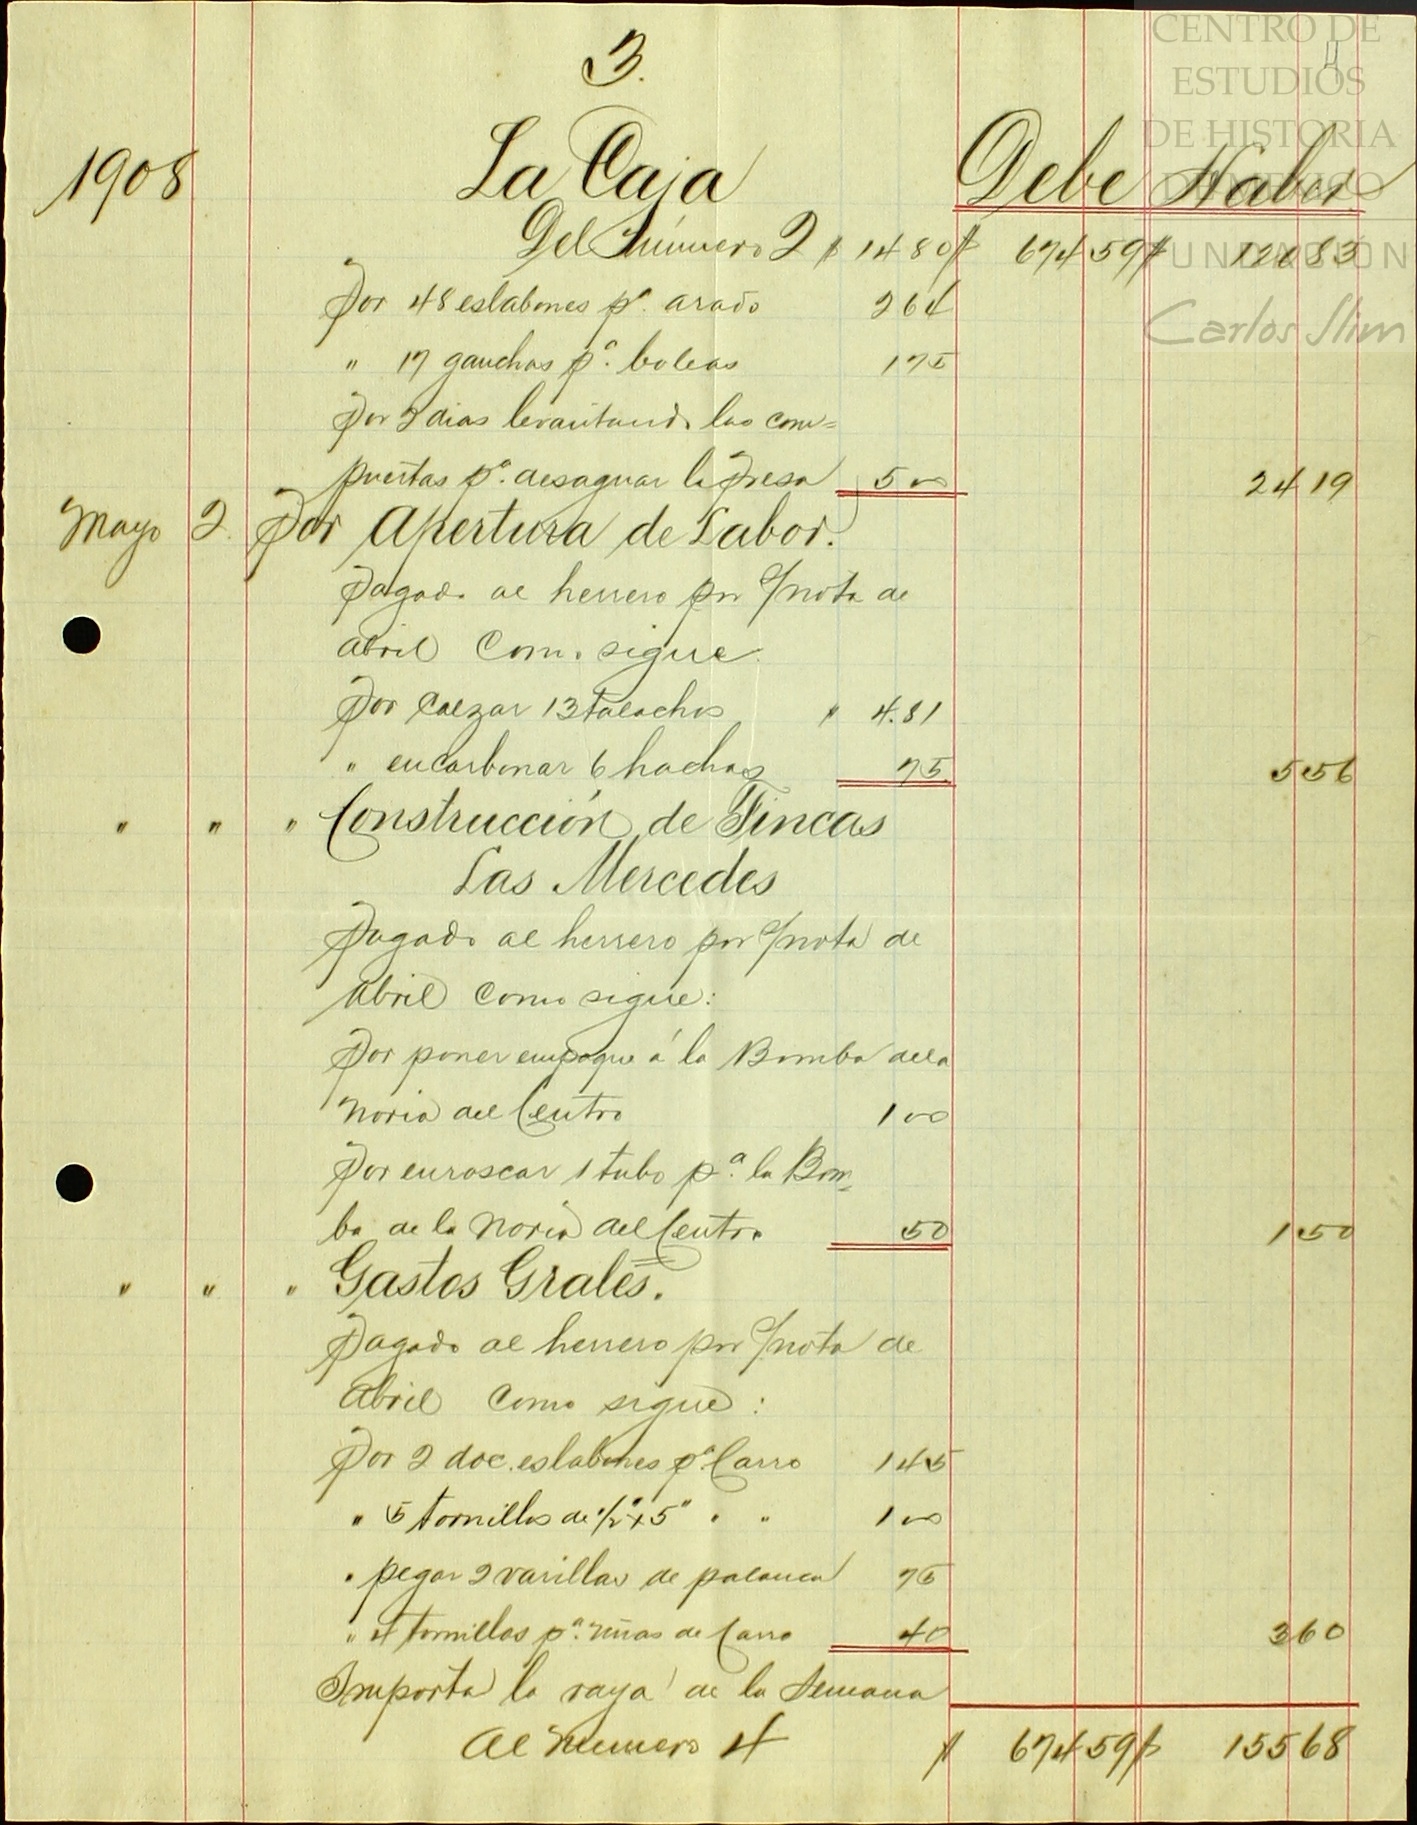 CENTRO DE
ESTUDIOS
DE HISTORIA
DE MÉXICO
FUNDACIÓN
Carlos Slim
3.
1908 La Caja Debe Haber
Del Número 2 $ 14 80 $ 674 59 $ 120 83
Por 48 eslabones pª. arado 2 64
" 17 ganchos pª. boleas 1 75
Por 2 dias levantando las com=
puertas pª. desaguar la Presa 5 00 24 19
Mayo 2 Por Apertura de Labor.
Pagado al herrero por s/nota de
abril Como sigue.
Por calzar 13 talachos $ 4.81
" encarbonar 6 hachas 75 5 56
" " " Construcción de Fincas
Las Mercedes
Pagado al herrero por s/nota de
abril como sigue:
Por poner empaque á la Bomba dela
Noria del Centro 1 00
Por enroscar 1 tubo pª. la Bom=
ba de la Noria del Centro 50 1 50
" " " Gastos Grales.
Pagado al herrero por s/nota de
abril como sigue:
Por 2 doc. eslabones pª. Carro 1 45
" 5 tornillos de 1/2" x 5" " " 1 00
" pegar 2 varillas de palanca 75
" 4 tornillos pª. uñas de Carro 40 3 60
Importa la raya de la Semana
Al Numero 4 $ 674 59 $ 155 68